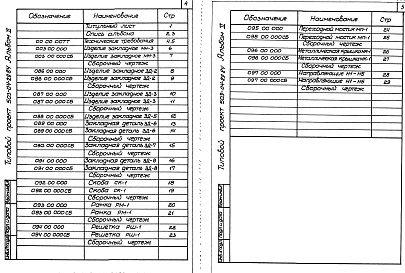 4
Обозначение Наименование Стр
Титульный лист 1
Опись альбома 2,3
00 00 00ТТ Технические требования 4,5
003 00 000 Изделие закладное МН-3 6
003 00 000СБ Изделие закладное МН-3 7
Сборочный чертеж
086 00 000 Изделие закладное ЗД-2 8
086 00 000СБ Изделие закладное ЗД-2 9
Сборочный чертеж
087 00 000 Изделие закладное ЗД-3 10
087 00 000СБ Изделие закладное ЗД-3 11
Сборочный чертеж
088 00 000СБ Изделие закладное ЗД-5 12
089 00 000 Закладная деталь ЗД-6 13
089 00 000СБ Закладная деталь ЗД-6 14
Сборочный чертеж
090 00 000СБ Закладная деталь ЗД-7 15
Сборочный чертеж
091 00 000 Закладная деталь ЗД-8 16
091 00 000СБ Закладная деталь ЗД-8 17
Сборочный чертеж
092 00 000 Скоба СК-1 18
092 00 000СБ Скоба СК-1 19
Сборочный чертеж
093 00 000 Рамка РМ-1 20
093 00 000СБ Рамка РМ-1 21
Сборочный чертеж
094 00 000 Решетка РШ-1 22
094 00 000СБ Решетка РШ-1 23
Сборочный чертеж
Типовой проект 501-07-5.87 Альбом II
5
Обозначение Наименование Стр
095 00 000 Переходной мостик МП-1 24
095 00 000СБ Переходной мостик МП-1 25
Сборочный чертеж
096 00 000 Металлическая крышка МК-1 26
096 00 000СБ Металлическая крышка МК-1 27
Сборочный чертеж
097 00 000 Направляющие Н1-Н5 28
097 00 000СБ Направляющие Н1-Н5 29
Сборочный чертеж
Типовой проект 501-07-5.87 Альбом II